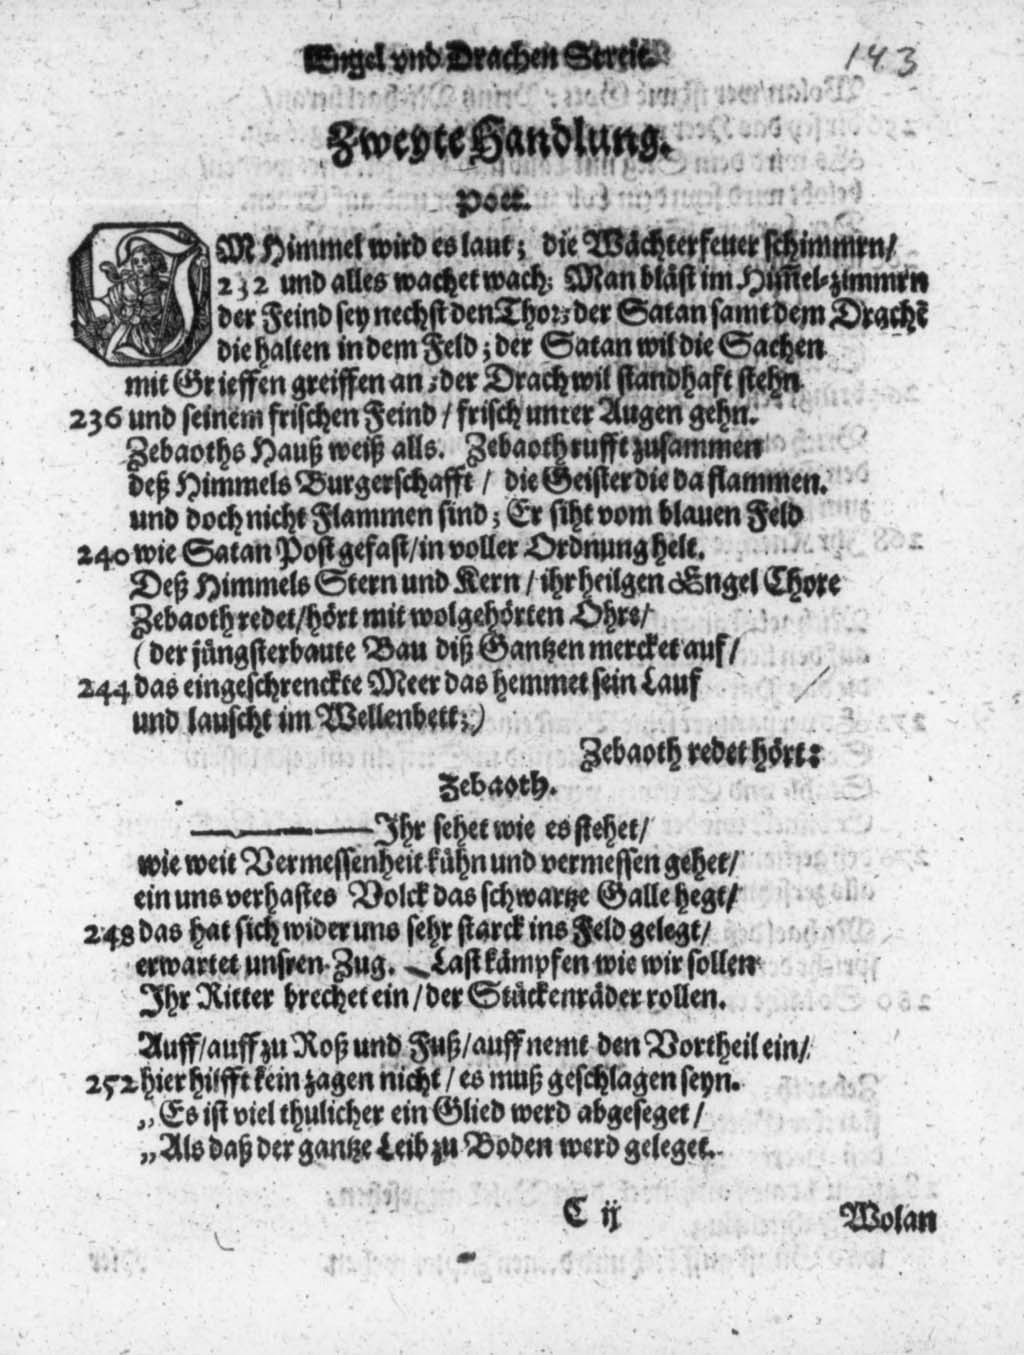 Engel vnd Drachen Streit.
143
Zweyte Handlung.
Poet.
IM Himmel wird es laut; die Wächterfeuer schimmrn/
232 und alles wachet wach: Man bläst im Him̃el-zimmrn
der Feind sey nechst den Thor; der Satan samt dem Drachẽ
die halten in dem Feld; der Satan wil die Sachen
mit Grieffen greiffen an; der Drach wil standhaft stehn
236 und seinem frischen Feind / frisch unter Augen gehn.
Zebaoths Hauß weiß alls. Zebaoth rufft zusammen
deß Himmels Burgerschafft / die Geister die da flammen.
und doch nicht Flammen sind; Er siht vom blauen Feld
240 wie Satan Post gefast/in voller Ordnung helt.
Deß Himmels Stern und Kern / ihr heilgen Engel Chore
Zebaoth redet/hört mit wolgehörten Ohre/
(der jüngsterbaute Bau diß Gantzen mercket auf/
244 das eingeschrenckte Meer das hemmet sein Lauf
und lauscht im Wellenbett;)
Zebaoth redet hört:
Zebaoth.
Ihr sehet wie es stehet/
wie weit Vermessenheit kühn und vermessen gehet/
ein uns verhastes Volck das schwartze Galle hegt/
248 das hat sich wider uns sehr starck ins Feld gelegt/
erwartet unsren Zug. Last kämpfen wie wir sollen
Ihr Ritter brechet ein / der Stückenräder rollen.
Auff/auff zu Roß und Fuß/auff nemt den Vortheil ein/
252 hier hilfft kein zagen nicht / es muß geschlagen seyn.
„Es ist viel thulicher ein Glied werd abgeseget /
„Als daß der gantze Leib zu Boden werd geleget.
C ij
Wolan